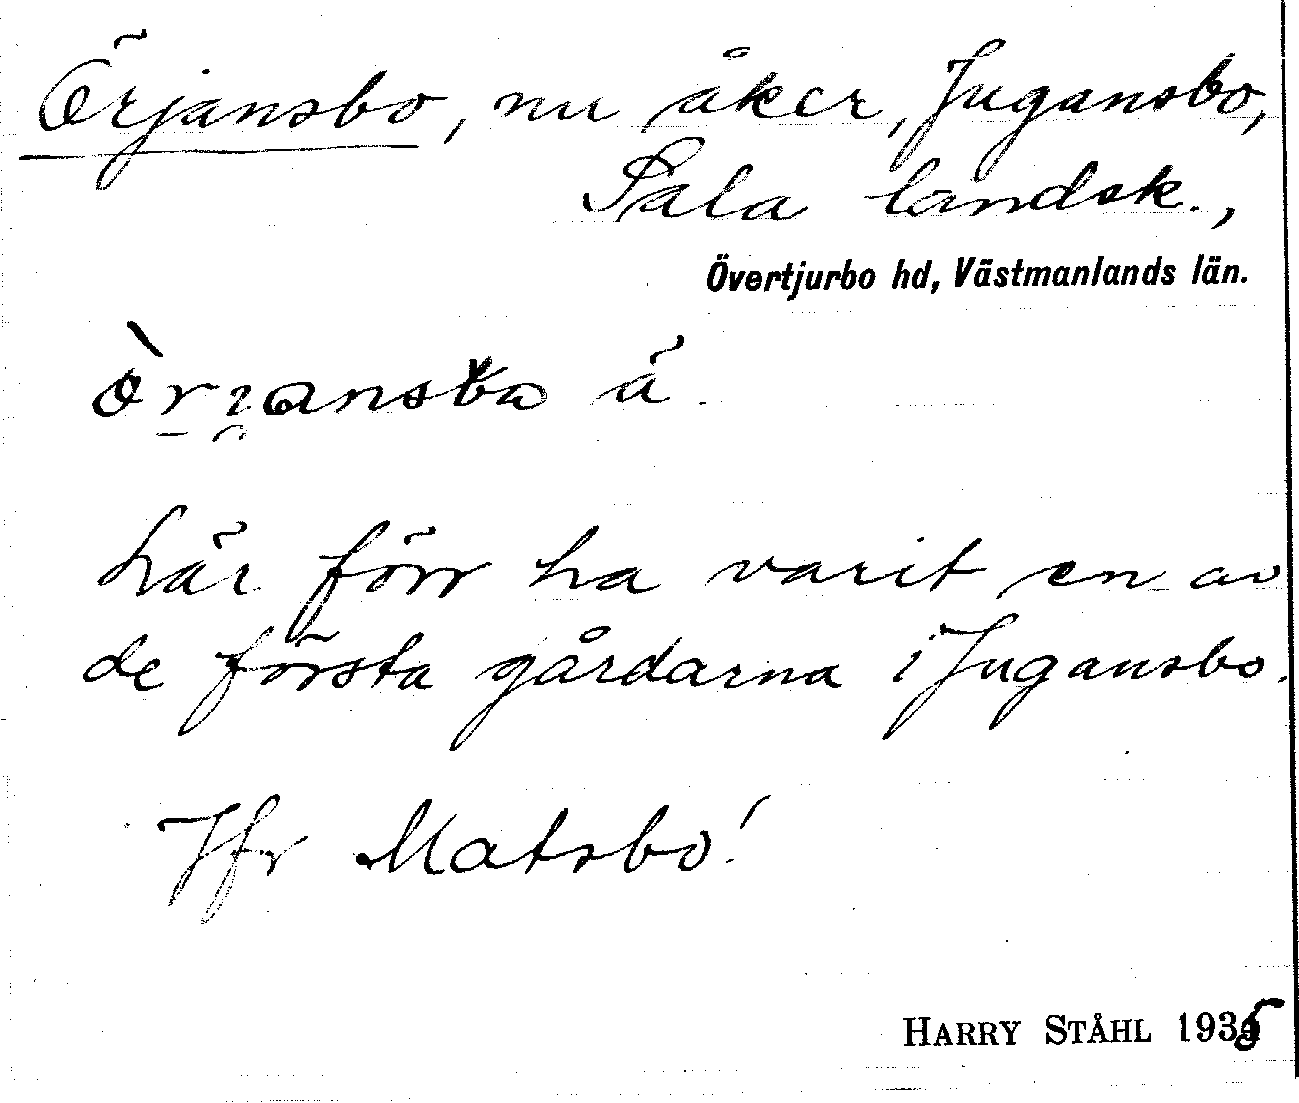 Örjansbo, nu åker, Jugansbo,
Sala landsk.,
Övertjurbo hd, Västmanlands län.
òrjansba ä
Lär förr ha varit en av
de första gårdarna i Jugansbo.
Jfr Matsbo!
HARRY STÅHL 1935